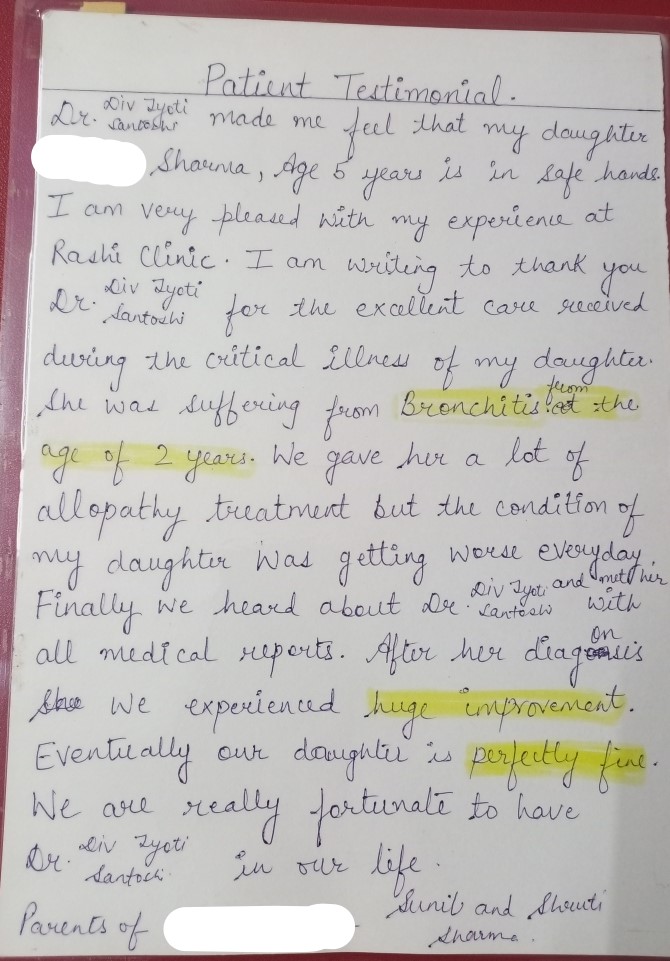 Patient Testimonial.
Dr. Div Jyoti Santoshi made me feel that my daughter
Sharma, Age 5 years is in safe hands.
I am very pleased with my experience at
Rashi Clinic. I am writing to thank you
Dr. Div Jyoti Santoshi for the excellent care received
during the critical illness of my daughter.
She was suffering from Bronchitis from the
age of 2 years. We gave her a lot of
allopathy treatment but the condition of
my daughter was getting worse everyday.
Finally we heard about Dr. Div Jyoti Santoshi and met her with
all medical reports. After her diagonsis
we experienced huge improvement.
Eventually our daughter is perfectly fine.
We are really fortunate to have
Dr. Div Jyoti Santoshi in our life.
Parents of
Sunil and Shruti
Sharma.